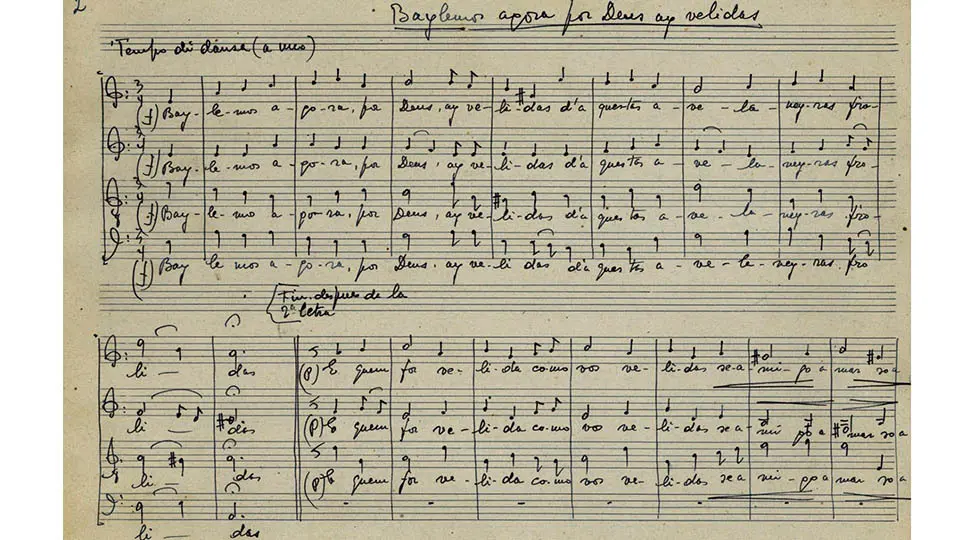 2
Baylemos agora por Deus ay velidas
Tempo di danza (a uno)
3 4 (f) Bay- le-mos a- go-ra, por Deus, ay ve- li-das d'a questas a- ve- la- ney-ras fro-
3 4 (f) Bay- le-mos a- go-ra, por Deus, ay ve- li-das d'a questas a- ve- la- ney-ras fro-
3 4 (f) Bay- le-mo a- go-ra, por Deus, ay ve- li-das d'a questas a- ve- la- ney-ras fro-
3 4 (f) Bay le mos a- go-ra, por Deus, ay ve- li das d'a questas a- ve- la- ney-ras fro
Fin. despues de la
2ª letra
li- das (p) E quem for ve- li-da co-mo vos ve- li-das se-a mi-go a mar so a
li- das (p) E quem for ve- li-da co-mo vo ve- li-das se a- mi go a mar so a
li- das (p) E quem for ve- li-da co-mo vos ve- li-das se a mi-go a mar so a
li- das